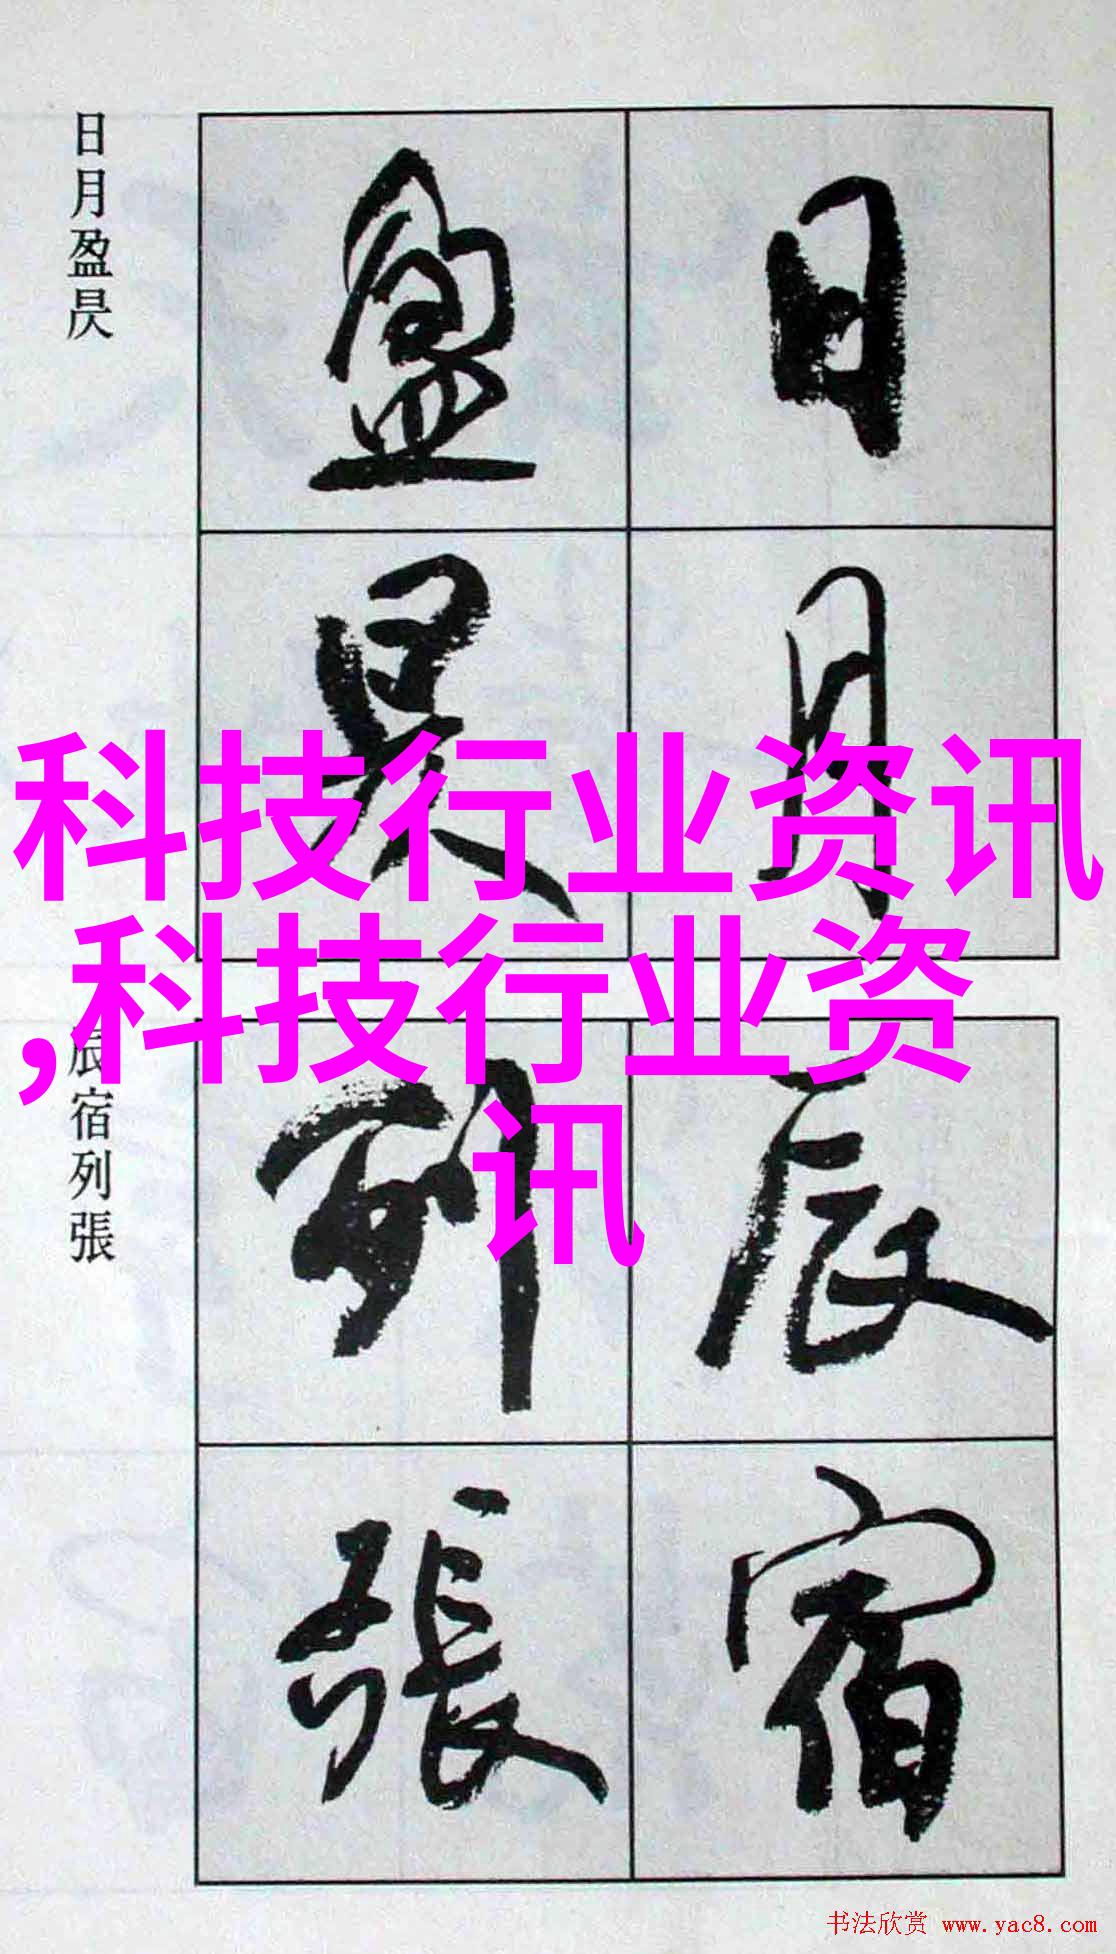 日月
盈昃
日月盈昃
科技行业资讯
,科技行业资
讯
辰宿
列張
辰宿列張
书法欣赏 www.yac8.com